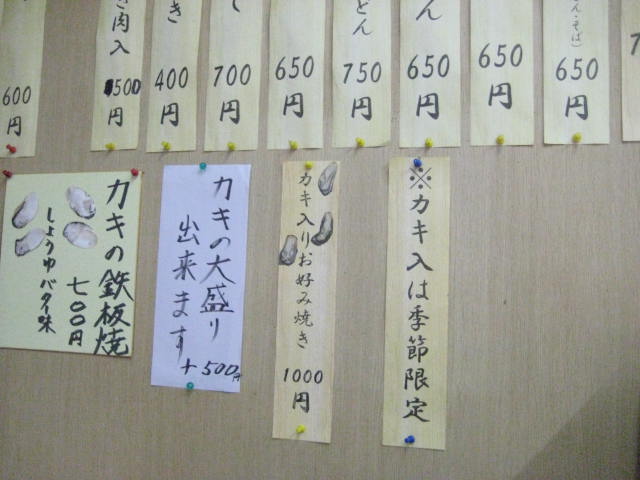 600円
き肉入
500円
き
400円
し
700円
650円
どん
750円
ん
650円
650円
ん・そば)
650円
カキの鉄板焼
七〇〇円
しょうゆバター味
カキの大盛り
出来ます
+500円
カキ入りお好み焼き
1000円
※カキ入は季節限定